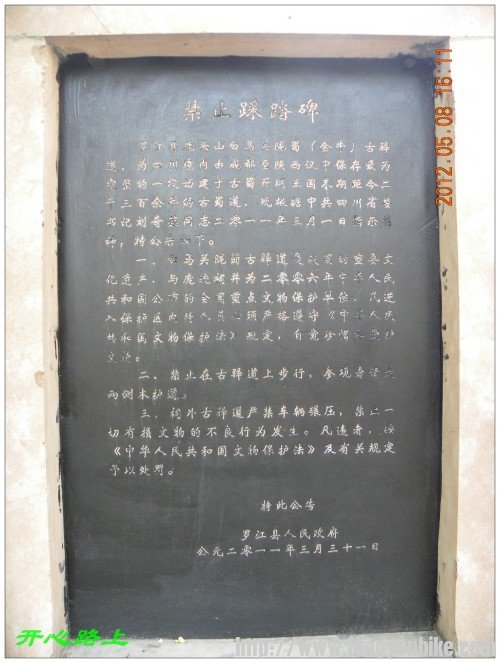 禁止踩踏碑
罗江县 头山白马关 蜀（金牛）古驿
道，为四川境内由成都至陕西汉中保存最为
完整的一段，始建于 开 国 期 二
千三百余年 古蜀道，现 共四川省
书记刘奇葆同志二零一一年三月一日 示精
神，特公告如下。
一、白马关 蜀古驿道是 贵的 文
化遗产，与庞 祠并为二零零六年中 人民
共和国公布的全国重点文物保护单位，凡进
入保护区内的人 须严格遵守《中 人民
共和国文物保护法》规定，自觉珍惜 护
文物。
二、禁止在古驿道上步行，参观者请走
两侧木护道。
三、祠外古驿道严禁车辆碾压，禁止一
切有损文物的不良行为发生。凡违者，按
《中华人民共和国文物保护法》及有关规定
予以处罚。
特此公告
罗江县人民政府
公元二零一一年三月三十一日
2012.05.08 16:11
开心路上